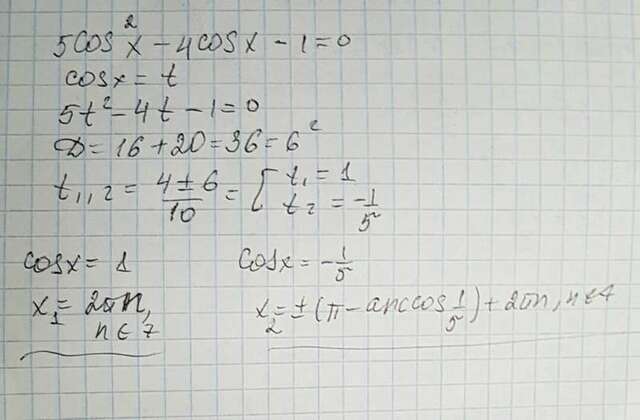 5cos²x - 4cosx - 1 = 0
cosx = t
5t² - 4t - 1 = 0
D = 16 + 20 = 36 = 6²
t₁,₂ = (4 ± 6)/10 = [ t₁ = 1
t₂ = -1/5
cosx = 1 cosx = -1/5
x₁ = 2πn, x₂ = ±(π - arccos 1/5) + 2πn, n ∈ Z
n ∈ Z